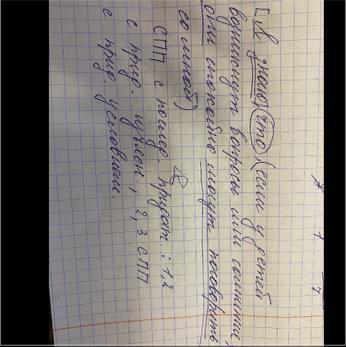 [Я знаю, (что) (если у детей
возникнут вопросы или сомнения,
они спокойно могут поговорить
со мной)
СПП с послед. придат.: 1, 2
с прид. изъясн., 2, 3 СПП
с прид. условия.